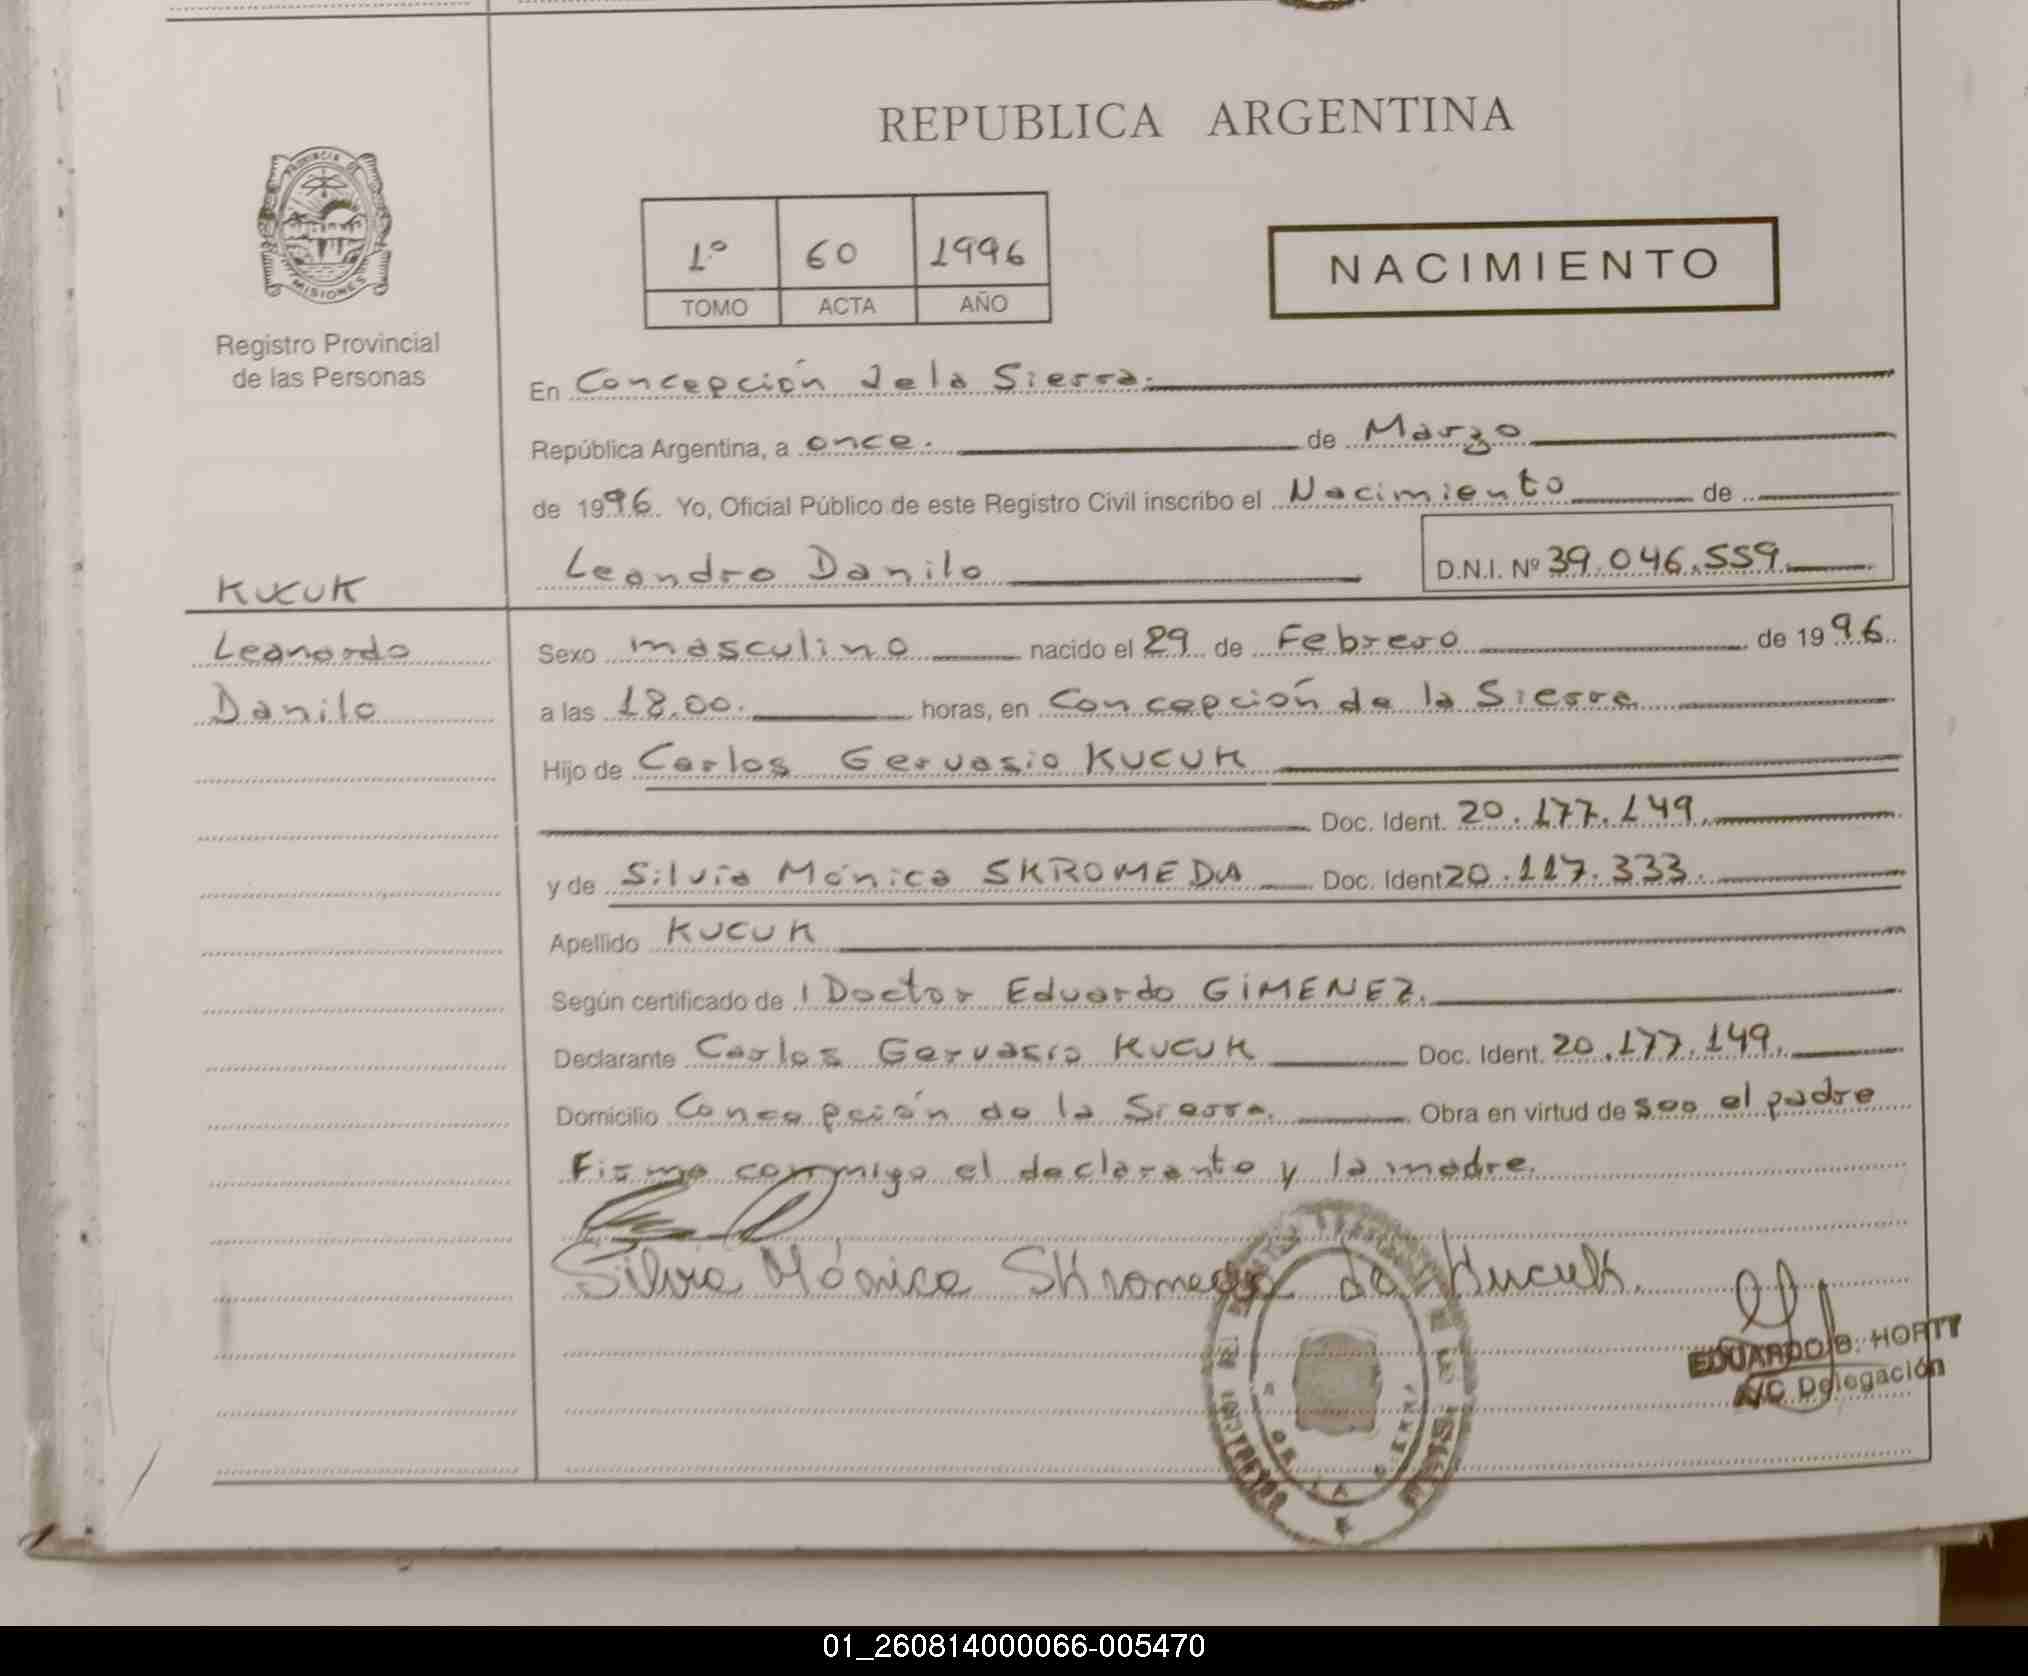 REPUBLICA ARGENTINA
PROVINCIA DE
MISIONES
Registro Provincial
de las Personas
1º 60 1996
TOMO ACTA AÑO
NACIMIENTO
En Concepción de la Sierra.
República Argentina, a once. de Marzo
de 1996. Yo, Oficial Público de este Registro Civil inscribo el Nacimiento de
Leandro Danilo D.N.I. Nº 39.046.559.
KUCUK
Leonardo
Danilo
Sexo masculino nacido el 29 de Febrero de 1996.
a las 18.00. horas, en Concepción de la Sierra
Hijo de Carlos Gervasio KUCUK
Doc. Ident. 20.177.149.
y de Silvia Mónica SKROMEDA Doc. Ident. 20.117.333.
Apellido KUCUK
Según certificado de Doctor Eduardo GIMENEZ.
Declarante Carlos Gervasio KUCUK Doc. Ident. 20.177.149.
Domicilio Concepción de la Sierra. Obra en virtud de ser el padre
Firma conmigo el declarante y la madre.
Silvia Mónica SKromeda de Kucuk.
EDUARDO B. HORTT
A/C Delegación
DE LA SIERRA
01_260814000066-005470